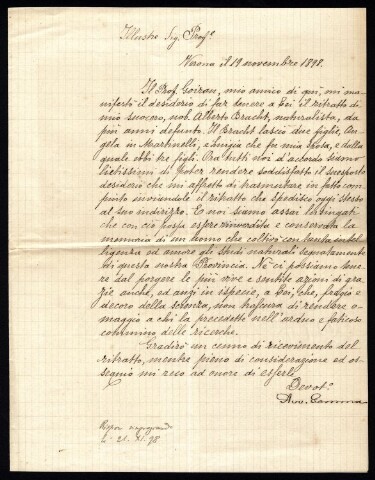 Illustre Sig. Prof.
Verona il 19 novembre 1898.
Il Prof. Goiran, mio amico di qui, mi ma-
nifestò il desiderio di far tenere a Lei il ritratto di
mio suocero, nob. Alberto Bracht, naturalista, da
più anni defunto. Il Bracht lasciò due figlie, An-
gela in Martinelli, e Luigia che fu mia sposa, e dalla
quale ebbi tre figli. Ora tutti noi d'accordo siamo
lietissimi di poter rendere soddisfatto il suesposto
desiderio che mi affretto di tramutare in fatto com-
piuto inviandole il ritratto che spedisco oggi stesso
al suo indirizzo. E noi siamo assai lusingati
che con ciò possa essere rinverdita e conservata la
memoria di un uomo che coltivò con tanta intel-
ligenza ed amore gli studi naturali segnatamente
di questa nostra Provincia. Nè ci possiamo tene-
re dal porgere le più vive e sentite azioni di gra-
zie anche, ed anzi in ispecie, a Lei, che, fregio e
decoro della scienza, non trascura di rendere o-
maggio a chi la precedette nell'arduo e faticoso
cammino delle ricerche.
Gradirò un cenno di ricevimento del
ritratto, mentre pieno di considerazione ed os-
sequio mi reco ad onore di esserle
Devot.
Avv.
Rispos. ringraziando
li 21. XI. 98